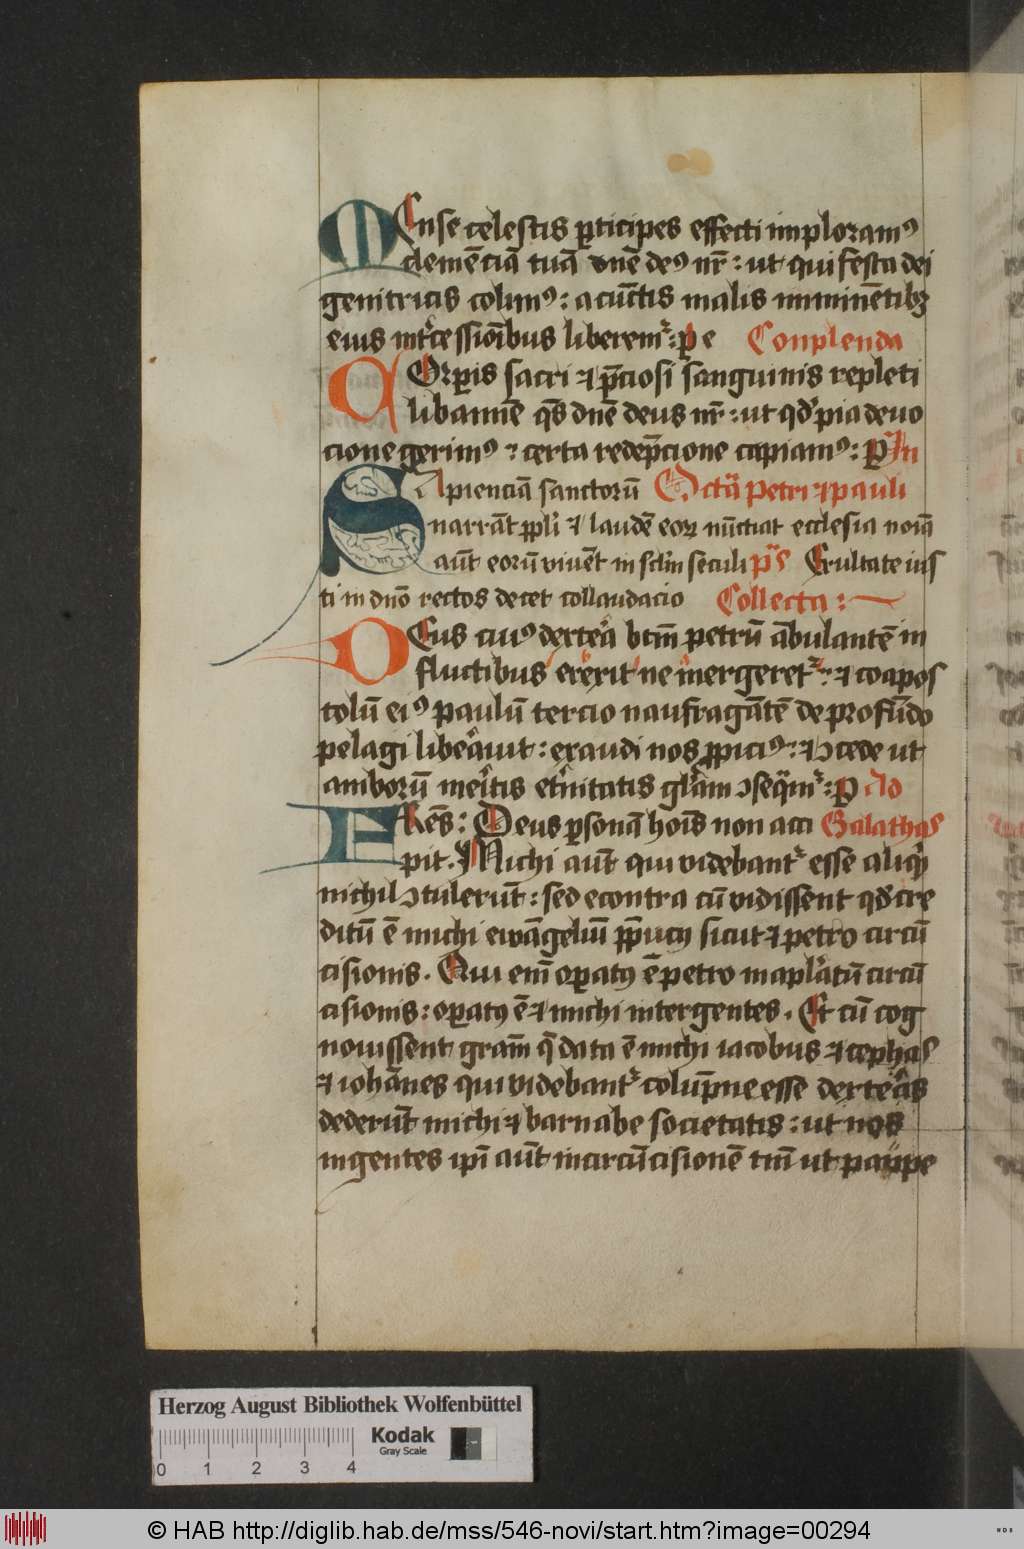 MEnse celestis ꝑticipes effecti imploramꝰ
clemēciā tuā dn̄e deꝰ nr̄ : ut qui festa dei
genitricis colimꝰ : a cūctis malis iminētibꝫ
eius int͛cessiōibus liberem᷑ : ꝑ e Conplenda
COrꝑis sacri ⁊ p̄ciosi sanguinis repleti
libamīe q̄s dn̄e deus nr̄ : ut qd̓ pia deuo
cione gerimꝰ : certa redēpcione capiamꝰ : P In
SApienciā sanctorū Octā Petri ⁊ pauli
narrāt ppli ⁊ laudē eoꝝ nūctiat ecclesia noīa
aūt eorū viuēt in sclm̄ seculi pˢ Exultate ius
ti in dn̄o rectos decet collaudacio Collecta :
DEus cuiꝰ dexteᵃ btm̄ petrū ābulantē in
fluctibus erexit ne mergeret᷑ : ⁊ coapos
tolū eiꝰ paulū tercio naufragātē de profūdo
pelagi libeᵃuit : exaudi nos ꝓpiciꝰ : ⁊ ↄcede ut
amborū meⁱtis et͛nitatis gl̄am ↄseqᵃm᷑ : P Ad
FRēs : Deus ꝑsonā hoīs non acci Galathas
pit . Michi aūt qui videbant᷑ esse aliqͥd
nichil ↄtulerūt : sed econtra cū vidissent qd̓ cre
ditū ē michi ewāgeliū p̄pucij sicut ⁊ petro circū
cisionis . Qui eni̅ oꝑatꝰ ē petro in aplātū circū
cisionis : oꝑatꝰ ē ⁊ michi inter gentes . Et cū cog
nouissent gram̄ q̄ data ē michi iacobus ⁊ cephas
⁊ iohānes qui videbant᷑ colūpne esse dexteᵃs
dederūt michi ⁊ barnabe societatis : ut nos
in gentes ipi̅ aūt in circūcisionē tm̄ ut paupe
Herzog August Bibliothek Wolfenbüttel
Kodak
Gray Scale
0 1 2 3 4
© HAB http://diglib.hab.de/mss/546-novi/start.htm?image=00294